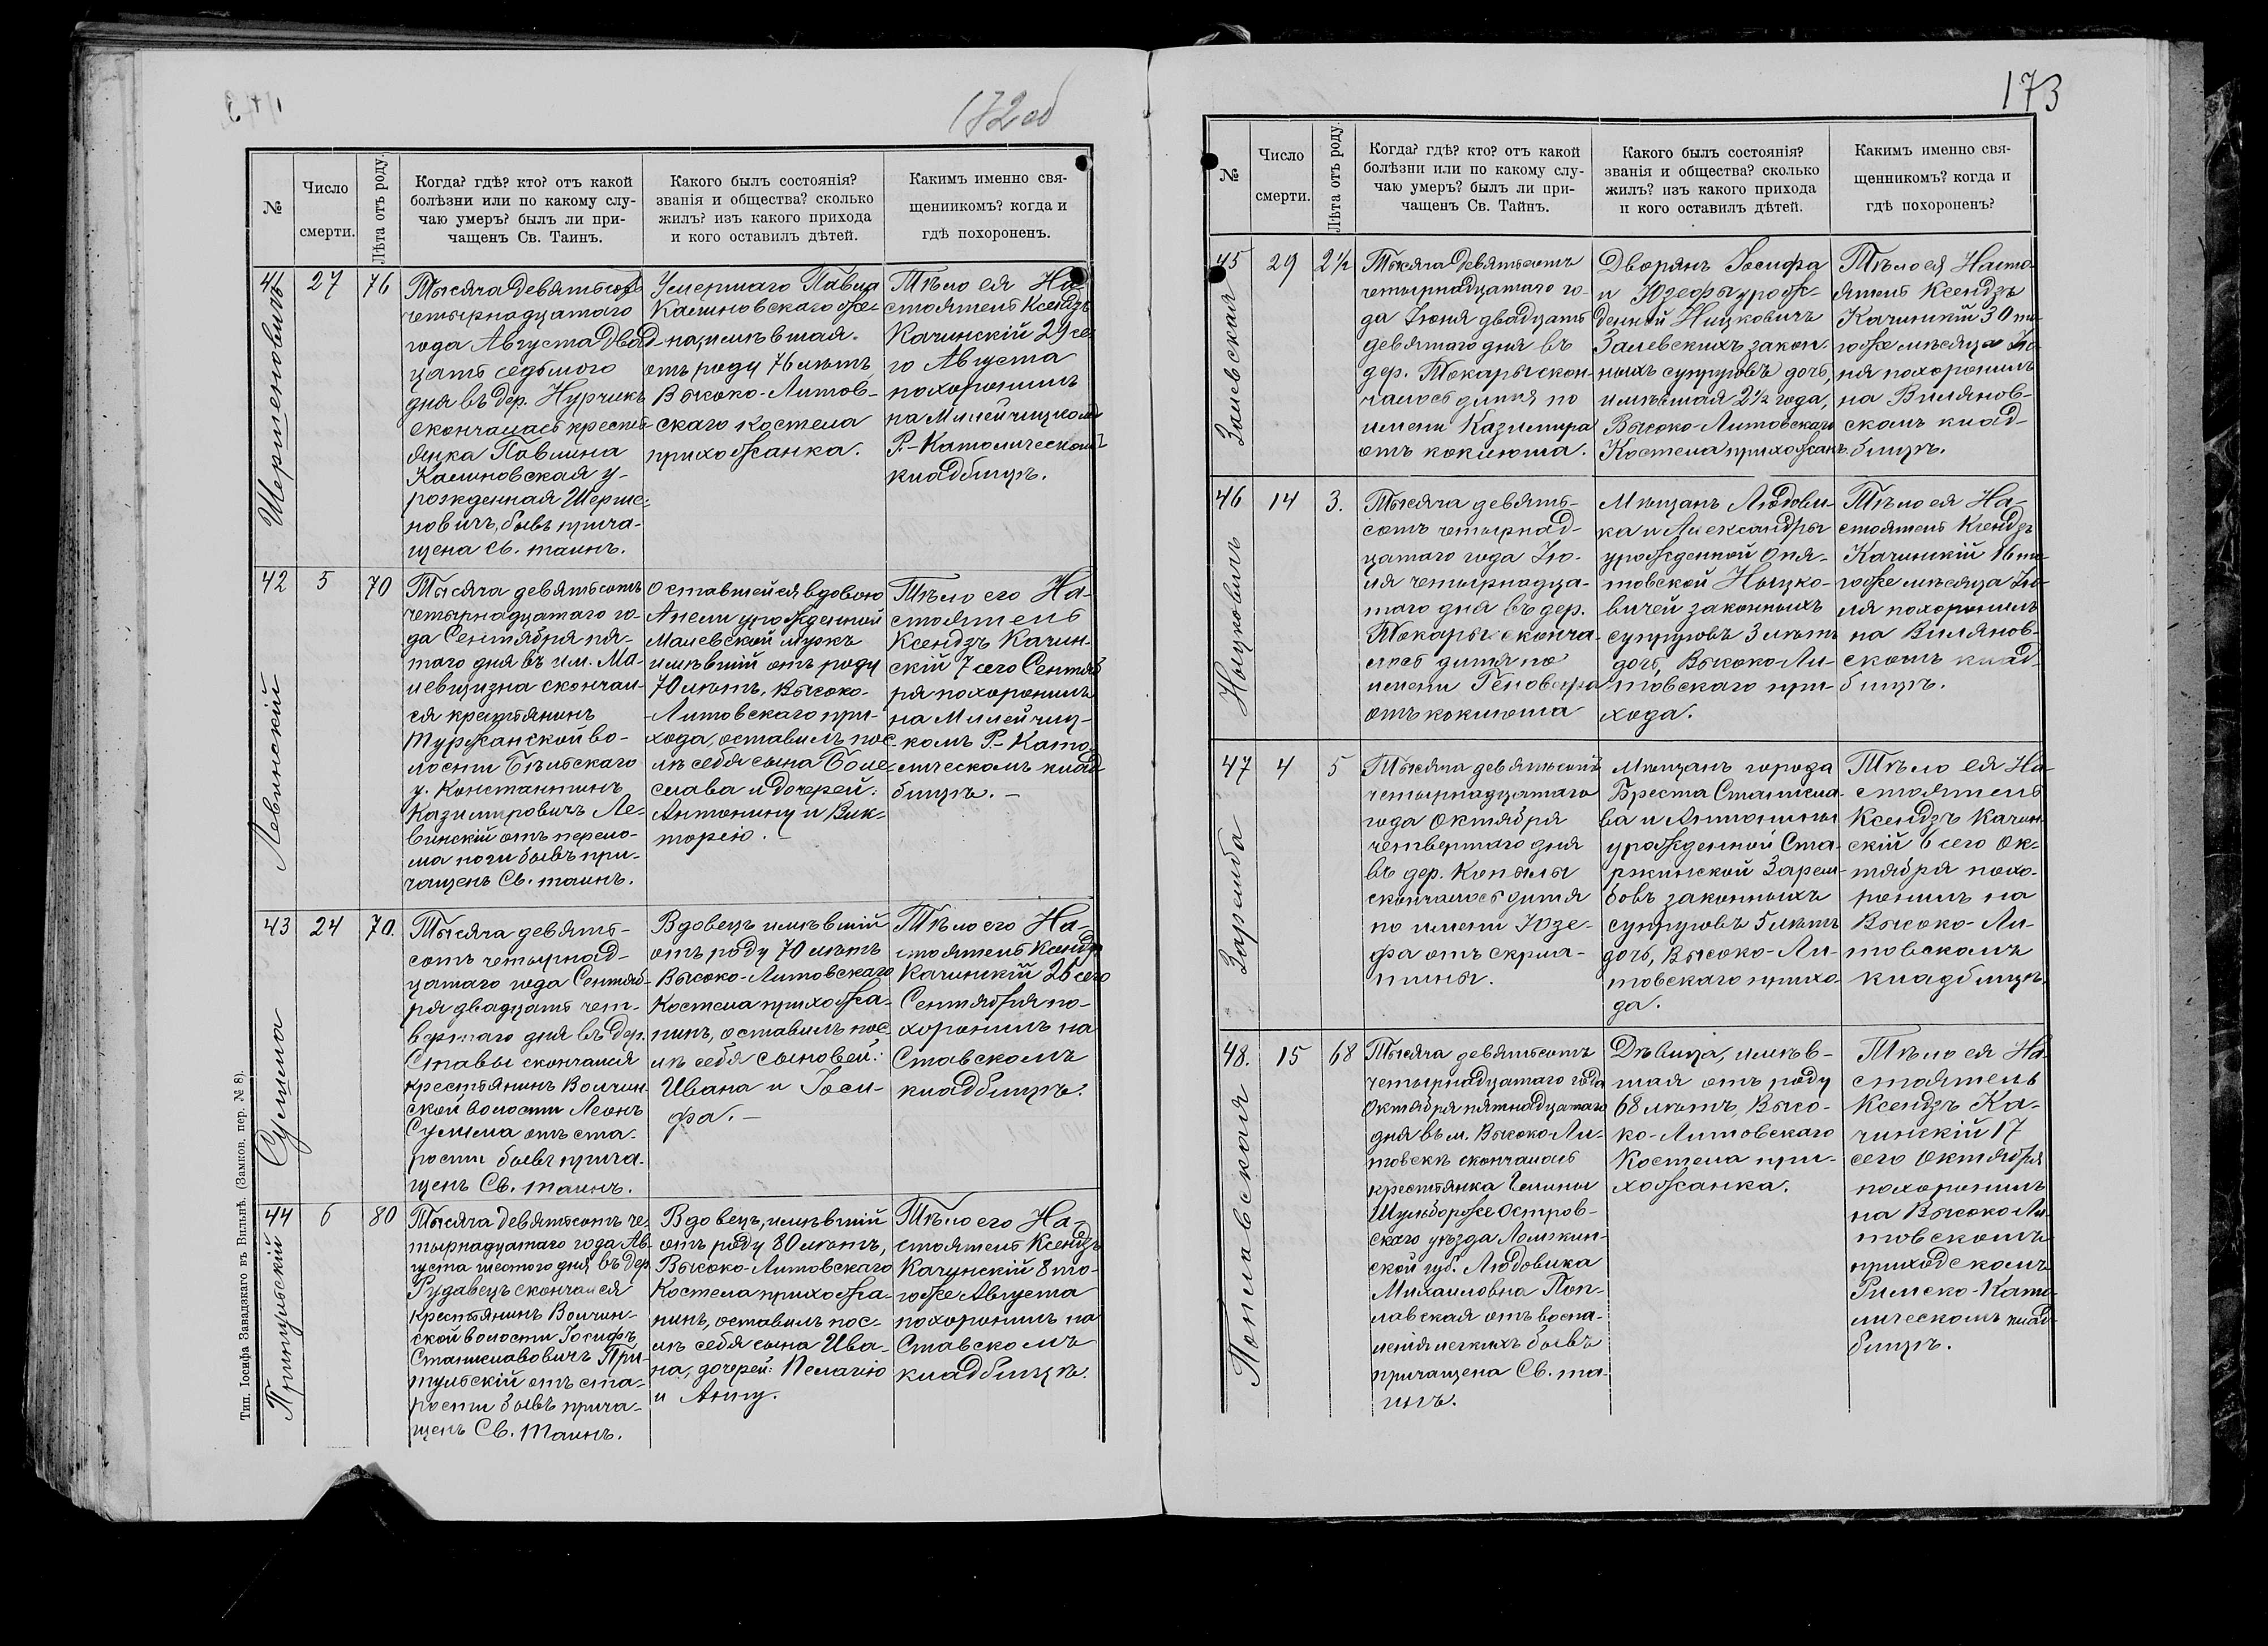 172 об
№
Число
смерти.
Лѣта отъ роду.
Когда? гдѣ? кто? отъ какой
болѣзни или по какому слу-
чаю умеръ? былъ ли при-
чащенъ Св. Таинъ.
Какого былъ состоянія?
званія и общества? сколько
жилъ? изъ какого прихода
и кого оставилъ дѣтей.
Какимъ именно свя-
щенникомъ? когда и
гдѣ похороненъ.
41
27
76
Тысяча девятьсотъ
четырнадцатаго
года Августа двад-
цать седьмого
дня въ дер. Нурчикъ
скончалась кресть-
янка Павлина
Калиновская у-
рожденная Шерше-
новичъ, бывъ прича-
щена Св. таинъ.
Умершаго Павла
Калиновскаго же-
на, имѣвшая
отъ роду 76 лѣтъ,
Высоко-Литов-
скаго Костела
прихожанка.
Тѣло ея На-
стоятель Ксендзъ
Качинскій 29 се-
го Августа
похоронилъ
на Милейчицкомъ
Р.-Католическомъ
кладбищѣ.
42
5
70
Левинскій
Тысяча девятьсотъ
четырнадцатаго го-
да Сентября пя-
таго дня въ им. Ма-
левщизна скончал-
ся крестьянинъ
Туржанской во-
лости Бѣльскаго
у. Константинъ
Казимировичъ Ле-
винскій отъ перело-
ма ноги бывъ при-
чащенъ Св. таинъ.
Оставшейся вдовою
Анели урожденной
Малевской мужъ
имѣвшій отъ роду
70 лѣтъ, Высоко-
-Литовскаго при-
хода, оставилъ пос-
лѣ себя сына Боле-
слава и дочерей:
Антонину и Вик-
торію. –
Тѣло его На-
стоятель
Ксендзъ Качин-
скій 7 сего Сентяб-
ря похоронилъ
на Милейчиц-
комъ Р.-Като-
лическомъ клад-
бищѣ. –
43
24
70.
Сулима
Тысяча девять-
сотъ четырнад-
цатаго года Сентяб-
ря двадцать чет-
вертаго дня въ дер.
Ставы скончался
крестьянинъ Волчин-
ской волости Леонъ
Сулима отъ ста-
рости бывъ прича-
щенъ Св. таинъ.
Вдовецъ имѣвшій
отъ роду 70 лѣтъ
Высоко-Литовскаго
Костела прихожа-
нинъ, оставилъ пос-
лѣ себя сыновей:
Ивана и Іоси-
фа. –
Тѣло его На-
стоятель Ксендзъ
Качинскій 26 сего
Сентября по-
хоронилъ на
Ставскомъ
кладбищѣ.
44
6
80
Притульскій
Тысяча девятьсотъ че-
тырнадцатаго года Ав-
густа шестого дня въ дер.
Рудавецъ скончался
крестьянинъ Волчин-
ской волости Іосифъ
Станиславовичъ При-
тульскій отъ ста-
рости бывъ прича-
щенъ Св. Таинъ.
Вдовецъ, имѣвшій
отъ роду 80 лѣтъ,
Высоко-Литовскаго
Костела прихожа-
нинъ, оставилъ пос-
лѣ себя сына Ива-
на, дочерей: Пелагію
и Анну.
Тѣло его На-
стоятель Ксендзъ
Качинскій 8 то-
гоже Августа
похоронилъ на
Ставскомъ
кладбищѣ.
Тип. Іосифа Завадзкаго въ Вильнѣ. (Замков. пер. № 8).
173
№
Число
смерти.
Лѣта отъ роду.
Когда? гдѣ? кто? отъ какой
болѣзни или по какому слу-
чаю умеръ? былъ ли при-
чащенъ Св. Тайнъ.
Какого былъ состоянія?
званія и общества? сколько
жилъ? изъ какого прихода
и кого оставилъ дѣтей.
Какимъ именно свя-
щенникомъ? когда и
гдѣ похороненъ?
45
29
2½
Залевская
Тысяча девятьсотъ
четырнадцатаго го-
да Іюня двадцать
девятаго дня въ
дер. Токары скон-
чалось дитя по
имени Казимира
отъ коклюша.
Дворянъ Іосифа
и Юзефы урож-
денной Ницковичъ
Залевскихъ закон-
ныхъ супруговъ дочь,
имѣвшая 2½ года,
Высоко-Литовскаго
Костела прихожан.
Тѣло ея Насто-
ятель Ксендзъ
Качинскій 30 то-
гоже мѣсяца Ію-
ня похоронилъ
на Вилянов-
скомъ клад-
бищѣ.
46
14
3.
Ныцковичъ
Тысяча девять-
сотъ четырнад-
цатаго года Ію-
ля четырнадца-
таго дня въ дер.
Токары сконча-
лось дитя по
имени Геновефа
отъ коклюша
Мѣщанъ Людови-
ка и Александры
урожденной Опя-
товской Ныцко-
вичей законныхъ
супруговъ 3 лѣтъ
дочь, Высоко-Ли-
товскаго при-
хода.
Тѣло ея На-
стоятель Ксендзъ
Качинскій 16 то-
гоже мѣсяца Ію-
ля похоронилъ
на Вилянов-
скомъ клад-
бищѣ.
47
4
5
Заремба
Тысяча девятьсотъ
четырнадцатаго
года Октября
четвертаго дня
въ дер. Копылы
скончалось дитя
по имени Юзе-
фа отъ скрла-
тины.
Мѣщанъ города
Бреста Станисла-
ва и Антонины
урожденной Ста-
ржинской Зарем-
бовъ законныхъ
супруговъ 5 лѣтъ
дочь, Высоко-Ли-
товскаго прихо-
да.
Тѣло ея На-
стоятель
Ксендзъ Качин-
скій 6 сего Ок-
тября похо-
ронилъ на
Высоко-Ли-
товскомъ
кладбищѣ.
48.
15
68
Поплавская
Тысяча девятьсотъ
четырнадцатаго года
Октября пятнадцатаго
дня въ м. Высоко-Ли-
товскѣ скончалась
крестьянка Гмины
Шульборже Остров-
скаго уѣзда Ломжин-
ской губ. Людовика
Михаиловна Поп-
лавская отъ воспа-
ленія легкихъ бывъ
причащена Св. та-
инъ.
Дѣвица, имѣв-
шая отъ роду
68 лѣтъ, Высо-
ко-Литовскаго
Костела при-
хожанка.
Тѣло ея На-
стоятель
Ксендзъ Ка-
чинскій 17
сего Октября
похоронилъ
на Высоко-Ли-
товскомъ
приходскомъ
Римско-Като-
лическомъ клад-
бищѣ.